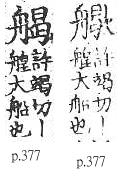 許竭切丨
大船也
p.377
許竭切丨
大船也
p.377